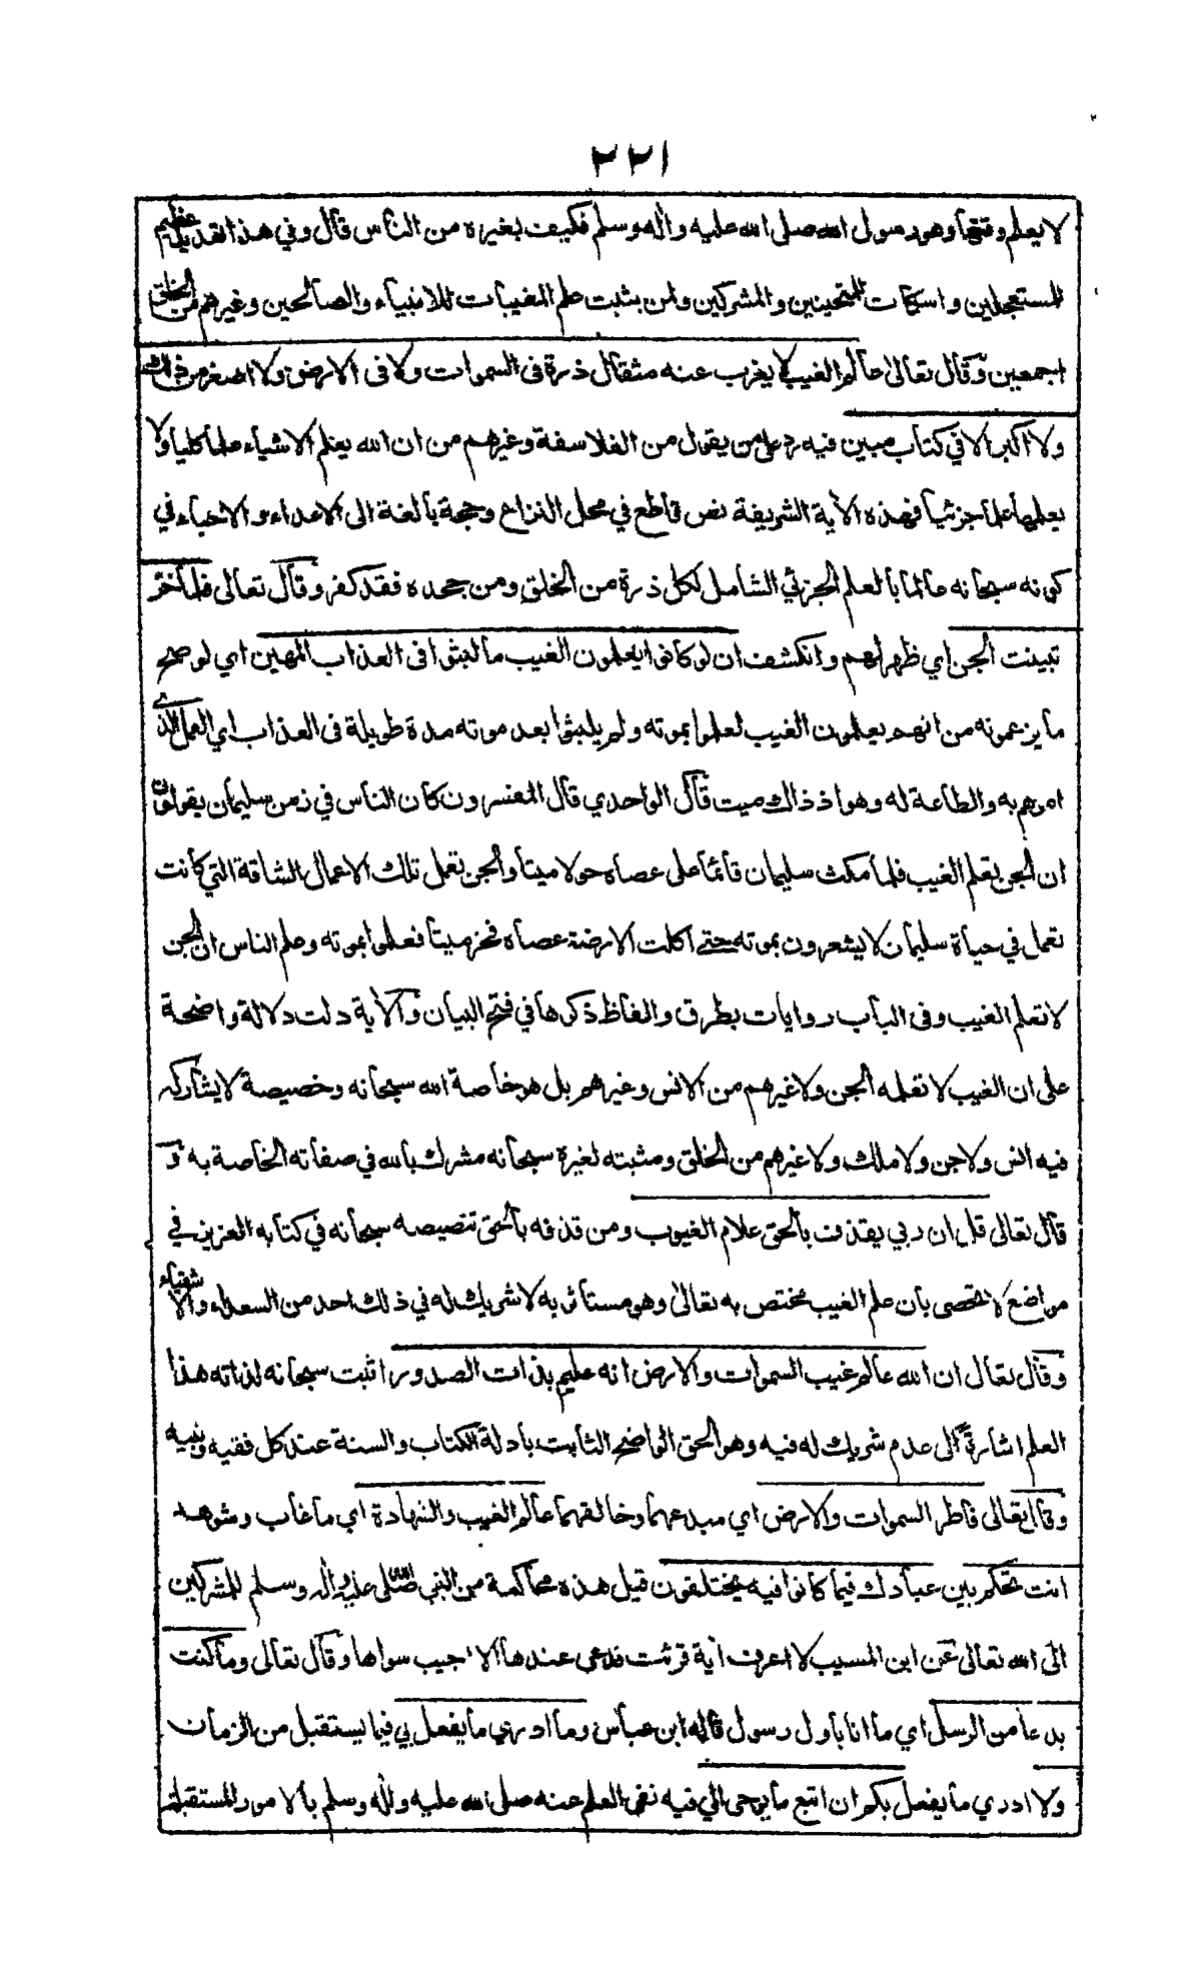 ٢٢١
لا يعلم وقتها وهو رسول الله صلى الله عليه واٰله وسلم فكيف بغيره من الناس قال وفي هذا تهديد عظيم
للمستعجلين واسكات للمتعنتين والمشركين ولمن يثبت علم المغيبات للانبياء والصالحين وغيرهم من الخلق
اجمعين وقال تعالى عالم الغيب لا يغرب عنه مثقال ذرة فى السموات ولا فى الارض ولا اصغر من ذلك
ولا اكبر الا في كتاب مبين فيه رد على من يقول من الفلاسفة وغيرهم من ان الله يعلم الاشياء علما كليا ولا
يعلمها علما جزئيا فهذه الاٰية الشريفة نص قاطع في محل النزاع وحجة بالغة الى الاعداء والاحباء في
كونه سبحانه عالما بالعلم الجزئي الشامل لكل ذرة من الخلق ومن جحده فقد كفر وقال تعالى فلما خر
تبينت الجن اي ظهر لهم وانكشف ان لو كانوا يعلمون الغيب ما لبثوا فى العذاب المهين اي لو صح
ما يزعمونه من انهم يعلمون الغيب لعلموا بموته ولم يلبثوا بعد موته مدة طويلة فى العذاب اي العمل الذي
امرهم به والطاعة له وهو اذ ذاك ميت قال الواحدي قال المفسرون كان الناس في زمن سليمان يقولون
ان الجن يعلم الغيب فلما مكث سليمان قائما على عصاه حولا ميتا والجن تعمل تلك الاعمال الشاقة التي كانت
تعمل في حياة سليمان لا يشعرون بموته حتى اكلت الارضة عصاه فخر ميتا فعلموا بموته وعلم الناس ان الجن
لا تعلم الغيب وفى الباب روايات بطرق والفاظ ذكرها في فتح البيان والاٰية دلت دلالة واضحة
على ان الغيب لا تعلمه الجن ولا غيرهم من الانس وغيرهم بل هو خاصة الله سبحانه وخصيصة لا يشاركه
فيه انس ولا جن ولا ملك ولا غيرهم من الخلق ومثبته لغيره سبحانه مشرك بالله في صفاته الخاصة به و
قال تعالى قل ان ربي يقذف بالحق علام الغيوب ومن قذفه بالحق تنصيصه سبحانه في كتابه العزيز في
مواضع لا تحصى بان علم الغيب مختص به تعالى وهو مستأثر به لا شريك له في ذلك احد من السعداء والاشقياء
وقال تعالى ان الله عالم غيب السموات والارض انه عليم بذات الصدور اثبت سبحانه لذاته هذا
العلم اشارة الى عدم شريك له فيه وهو الحق الواضح الثابت بادلة الكتاب والسنة عند كل فقيه ونبيه
وقال تعالى فاطر السموات والارض اي مبدعهما وخالقهما عالم الغيب والشهادة اي ما غاب وشوهد
انت تحكم بين عبادك فيما كانوا فيه يختلفون قيل هذه محاكمة من النبي صلى الله عليه واٰله وسلم للمشركين
الى الله تعالى عن ابن المسيب لا اعرف اٰية قرئت فدعي عندها الا اجيب سواها وقال تعالى وما كنت
بدعا من الرسل اي ما انا باول رسول قاله ابن عباس وما ادري ما يفعل بي فيما يستقبل من الزمان
ولا ادري ما يفعل بكم ان اتبع ما يوحى الي فيه نفي العلم عنه صلى الله عليه واٰله وسلم بالامور المستقبلة